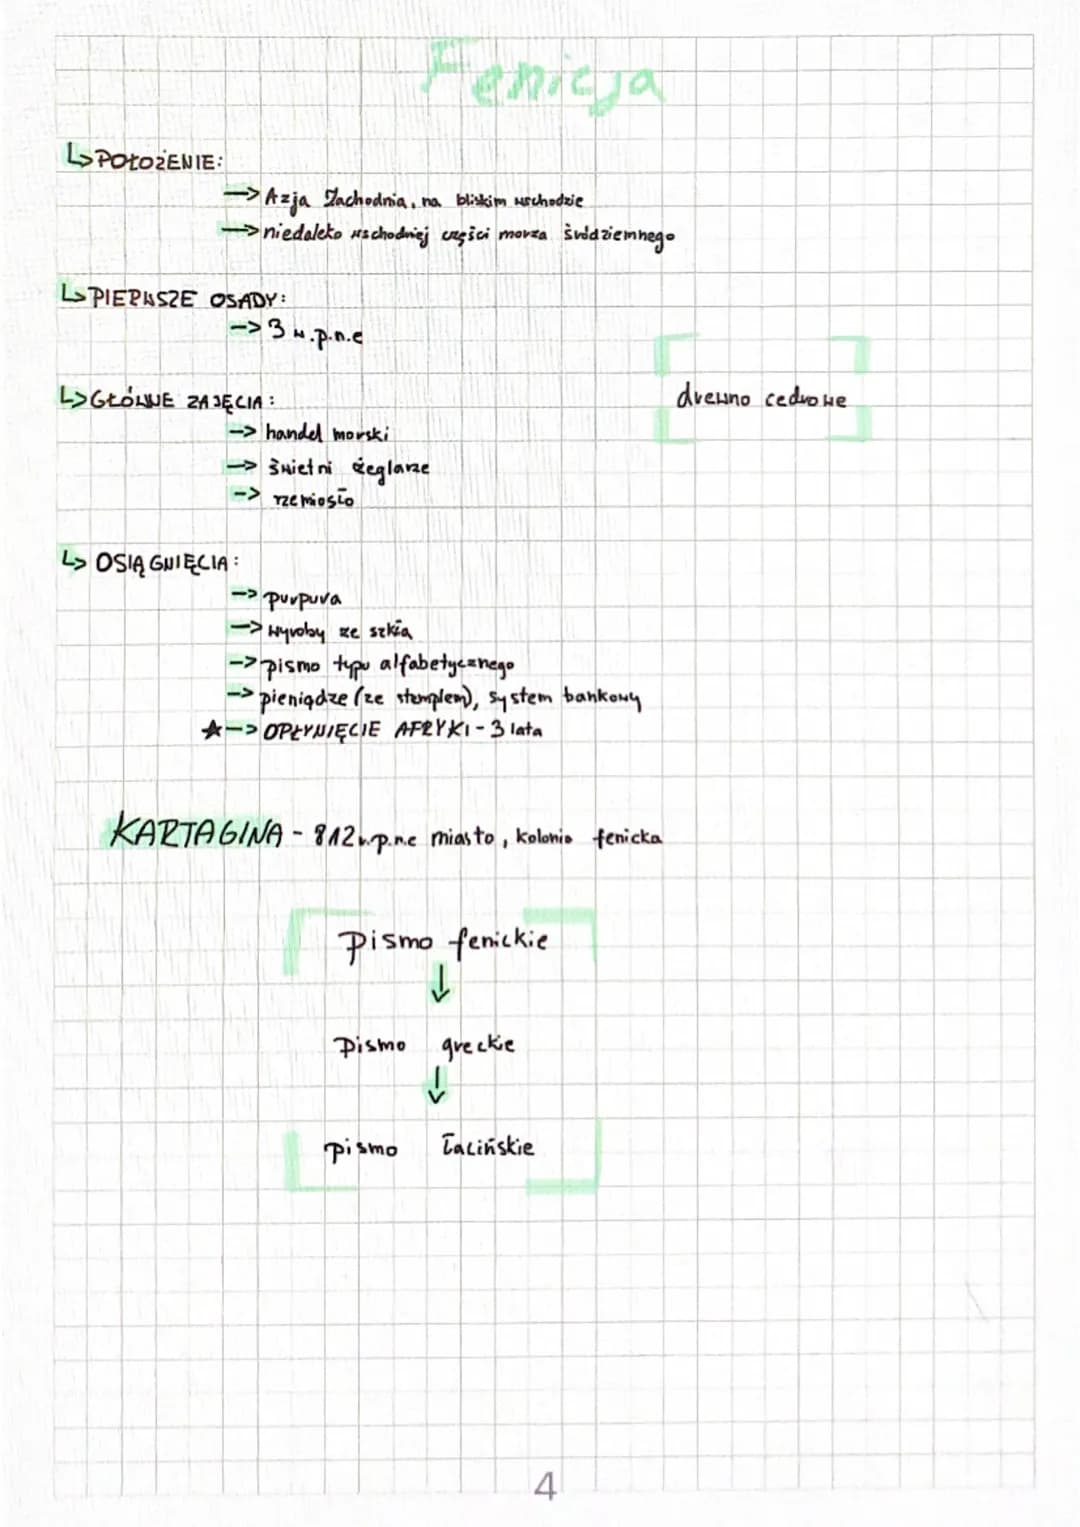 Fenicja
↳ POŁOŻENIE:
→ Azja Zachodnia, na bliskim wschodzie
→ niedaleko wschodniej części morza śródziemnego
↳ PIERWSZE OSADY:
→ 3 w.p.n.e
↳ GŁÓWNE ZAJĘCIA:
drewno cedrowe
→ handel morski
→ świetni żeglarze
→ rzemiosło
↳ OSIĄGNIĘCIA:
→ purpura
→ wyroby ze szkła
→ pismo typu alfabetycznego
→ pieniądze (ze stemplem), system bankowy
☆ → OPŁYNIĘCIE AFRYKI - 3 lata
KARTAGINA - 812 w.p.n.e miasto, kolonia fenicka
pismo fenickie
↓
pismo greckie
↓
pismo łacińskie
4